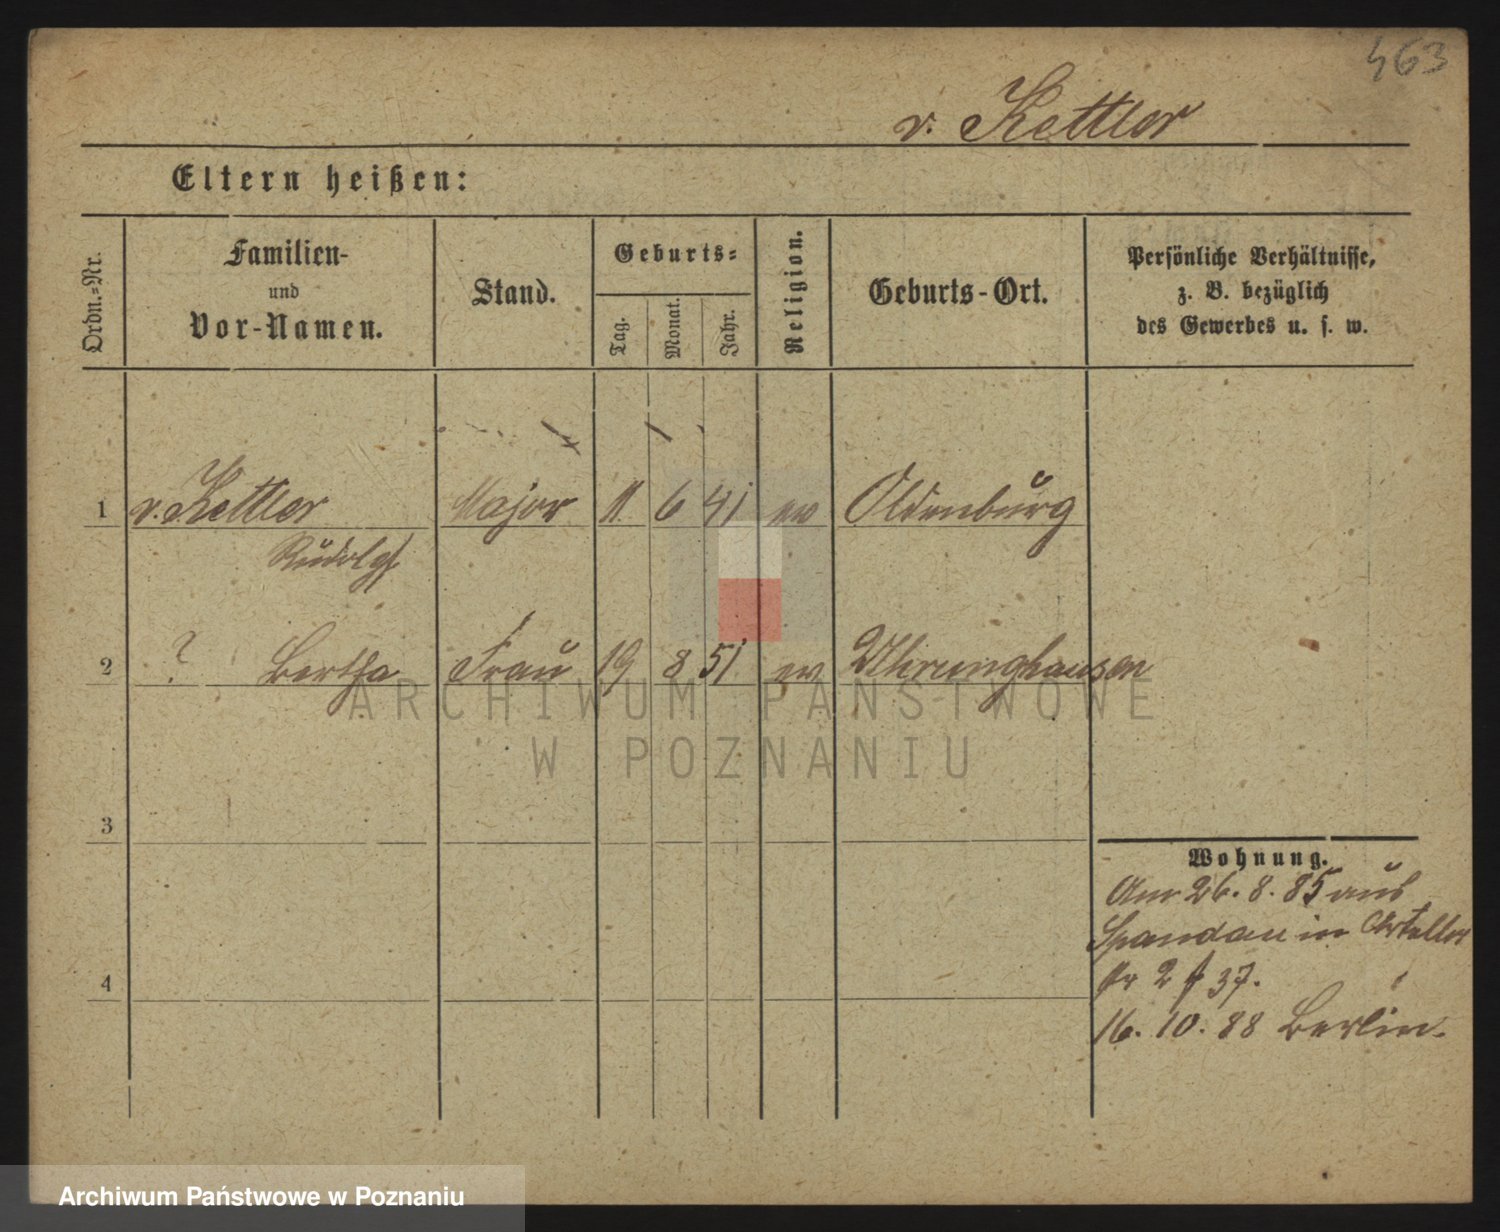 463
v. Kettler
Eltern heißen:
Ordn.-Nr.
Familien-
und
Vor-Namen.
Stand.
Geburts-
Tag.
Monat.
Jahr.
Religion.
Geburts-Ort.
Persönliche Verhältnisse,
z. B. bezüglich
des Gewerbes u. s. w.
1 v. Kettler Major 11. 6 41 ev Oldenburg
Rudolf
2 ? Bertha Frau 19 8 51 ev
ARCHIWUM PAŃSTWOWE
W POZNANIU
3
Wohnung.
26. 8. 85 aus
Spandau in
4
2 37.
16. 10. 88 Berlin.
Archiwum Państwowe w Poznaniu